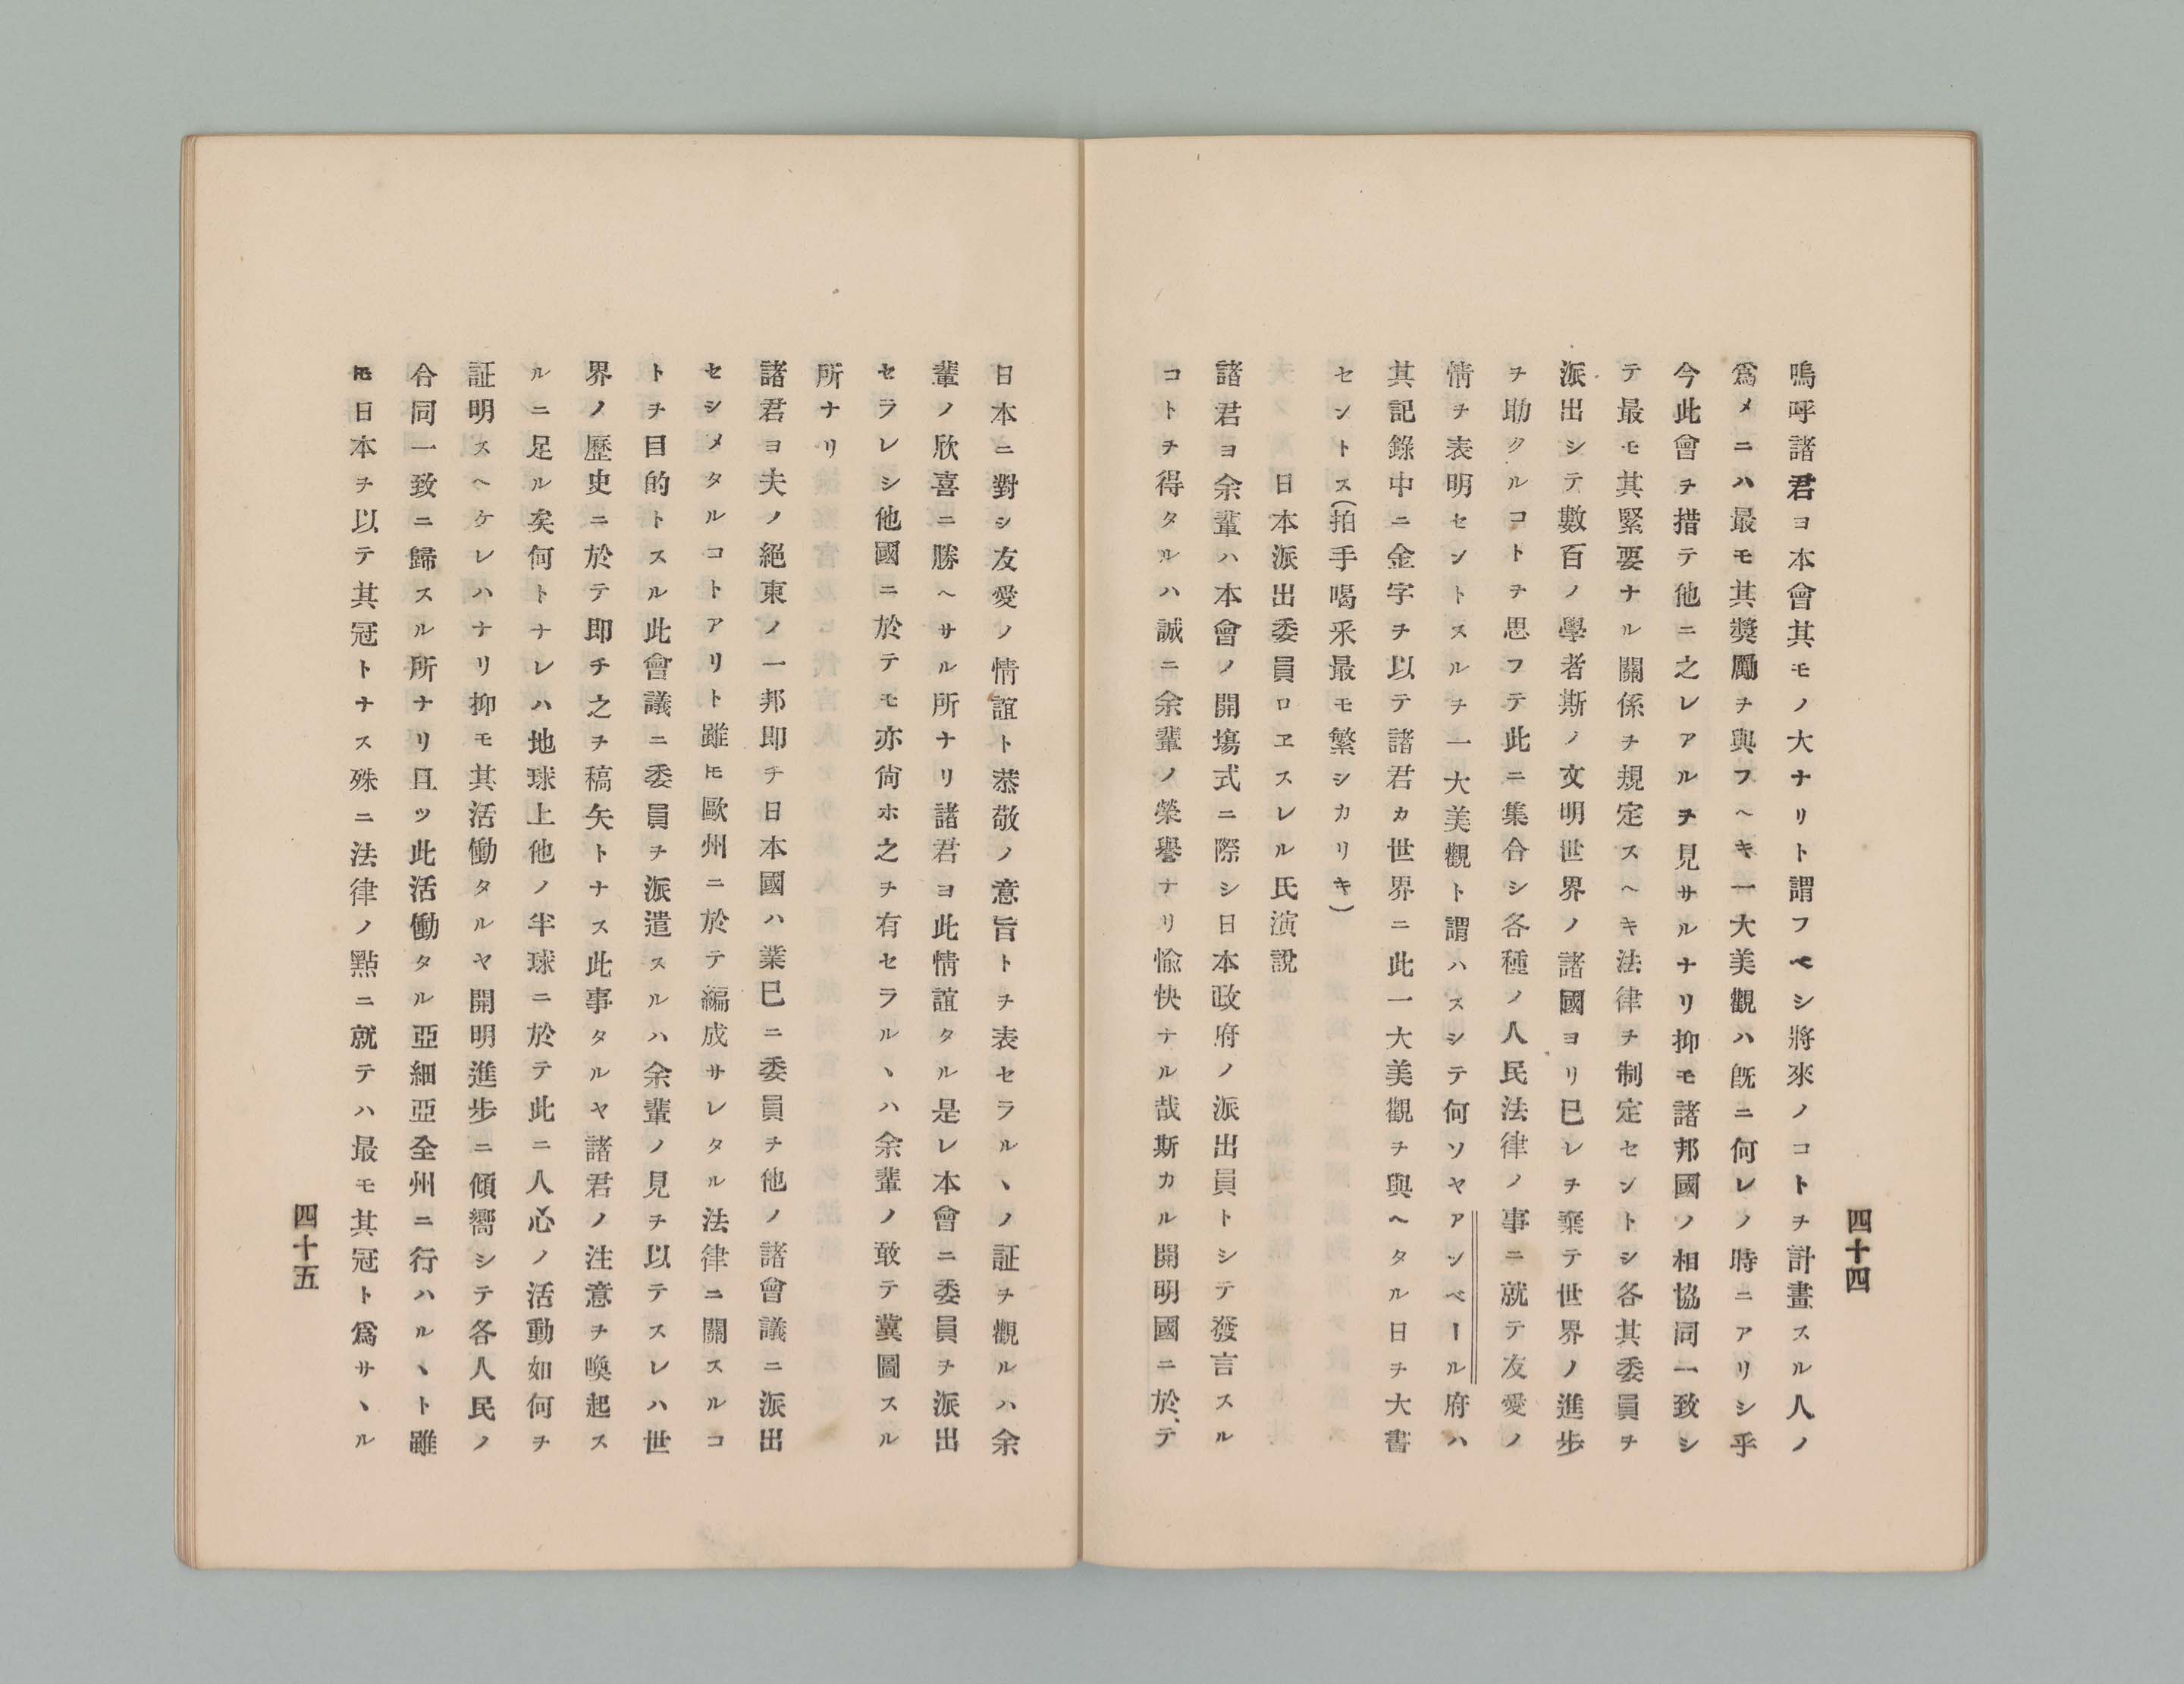 四十四
嗚呼諸君ヨ本會其モノ大ナリト謂フベシ將來ノコトヲ計畫スル人ノ
爲メニハ最モ其奬勵ヲ與フヘキ一大美觀ハ旣ニ何レノ時ニアリシ乎
今此會ヲ措テ他ニ之レアルヲ見サルナリ抑モ諸邦國ノ相協同一致シ
テ最モ其緊要ナル關係ヲ規定スヘキ法律ヲ制定セントシ各其委員ヲ
派出シテ數百ノ學者斯ノ文明世界ノ諸國ヨリ已レヲ棄テ世界ノ進歩
ヲ助クルコトヲ思フテ此ニ集合シ各種ノ人民法律ノ事ニ就テ友愛ノ
情ヲ表明セントスルヲ一大美觀ト謂ハスシテ何ソヤアンベール府ハ
其記錄中ニ金字ヲ以テ諸君カ世界ニ此一大美觀ヲ與ヘタル日ヲ大書
セントス(拍手喝采最モ繁シカリキ)
日本派出委員ロヱスレル氏演說
諸君ヨ余輩ハ本會ノ開塲式ニ際シ日本政府ノ派出員トシテ發言スル
コトヲ得タルハ誠ニ余輩ノ榮譽ナリ愉快ナル哉斯カル開明國ニ於テ
日本ニ對シ友愛ノ情誼ト恭敬ノ意旨トヲ表セラルヽノ証ヲ觀ルハ余
輩ノ欣喜ニ勝ヘサル所ナリ諸君ヨ此情誼タル是レ本會ニ委員ヲ派出
セラレシ他國ニ於テモ亦尙ホ之ヲ有セラルヽハ余輩ノ敢テ冀圖スル
所ナリ
諸君ヨ夫ノ絕東ノ一邦即チ日本國ハ業已ニ委員ヲ他ノ諸會議ニ派出
セシメタルコトアリト雖𪜈歐州ニ於テ編成サレタル法律ニ關スルコ
トヲ目的トスル此會議ニ委員ヲ派遣スルハ余輩ノ見ヲ以テスレハ世
界ノ歷史ニ於テ即チ之ヲ稿矢トナス此事タルヤ諸君ノ注意ヲ喚起ス
ルニ足ル矣何トナレハ地球上他ノ半球ニ於テ此ニ人心ノ活動如何ヲ
証明スヘケレハナリ抑モ其活働タルヤ開明進步ニ傾嚮シテ各人民ノ
合同一致ニ歸スル所ナリ且ツ此活働タル亞細亞全州ニ行ハルヽト雖
𪜈日本ヲ以テ其冠トナス殊ニ法律ノ點ニ就テハ最モ其冠ト爲サヽル
四十五